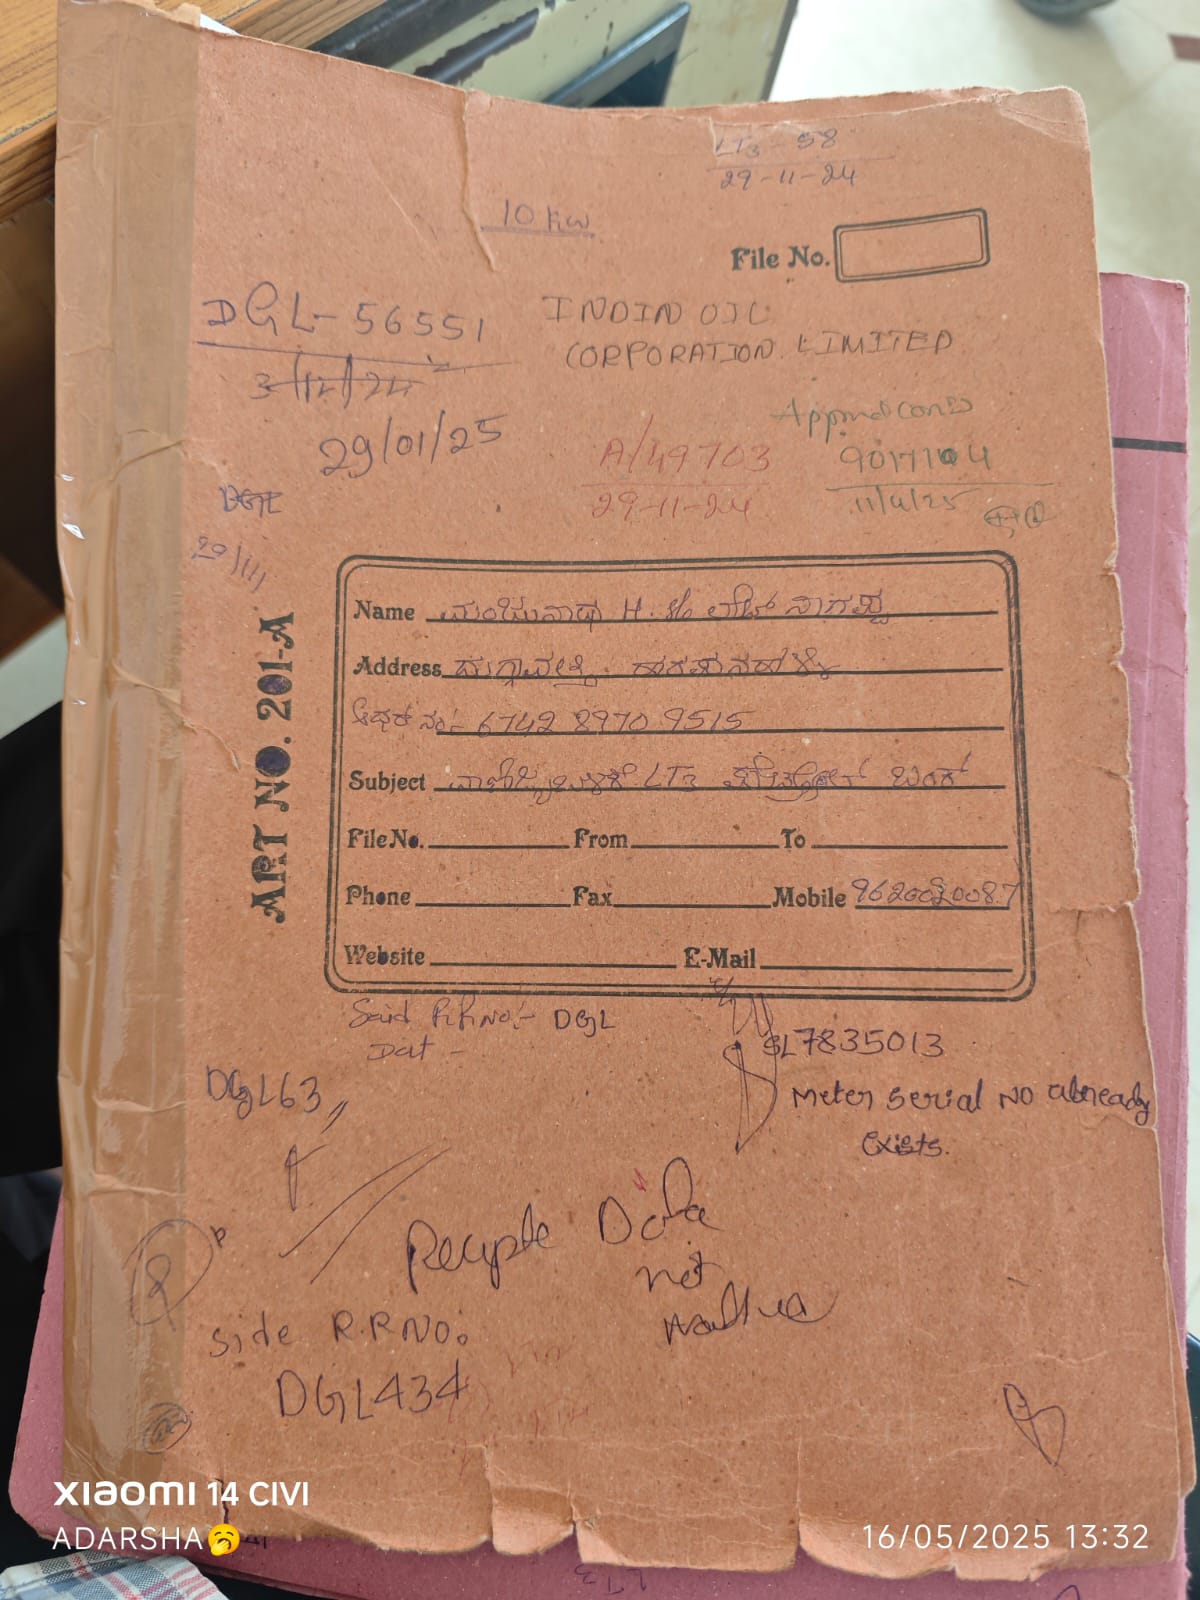 LT3 - 58
29-11-24
10 KW
File No.
DGL-56551
3/12/24
29/01/25
INDIN OIL
CORPORATION LIMITED
A/49703
29-11-24
9017104
11/4/25
DGL
29/11
ART NO. 201-A
Name ಮಂಜುನಾಥ H. S/o ಲೇಟ್ ನಾಗಪ್ಪ
Address
ಆಧಾರ್ ನಂ:- 6742 8970 9515
Subject LT3 ಬಂಕ್
File No. From To
Phone Fax Mobile
Website E-Mail
Said R.R No:- DGL
Dat -
SL7835013
DGL63
Meter serial NO already
Exists.
Data
not
Side R.R NO:
DGL434
xiaomi 14 CIVI
ADARSHA🥱
16/05/2025 13:32